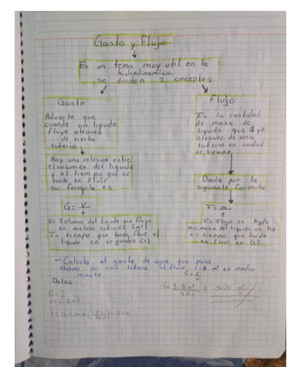 Gasto y Flujo
Es un tema muy util en la
hidrodinamica.
se divide en 2 conceptos
Gasto
Advierte que
cuando un liquido
fluye atraves
de
tuberia
Hay una relacion entre
el volumen del liquido
y el tiempo que se
tarda en fluir
su formula es
G = V
V= Volumen del liquido que fluye
en metros cubicos (m³)
T= tiempo que tarda fluir el
liquido en segundos (s).
Flujo
Es la cantidad
de masa de
liquido que fluye
atraves de una
tuberia en unidad
de tiempo
Dada por la
siguiente formula
F=
F= Flujo en kg/s
m= masa del liquido en kg
t= tiempo que tarda
en fluir en (s).
- Calcula el gasto de agua que pasa
atraves de una tuberia al fluir 1.8 m³ en medio
minuto
Datos
G=